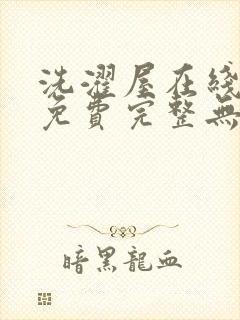 洗濯屋在綫
免費完整無
暗黑龍血